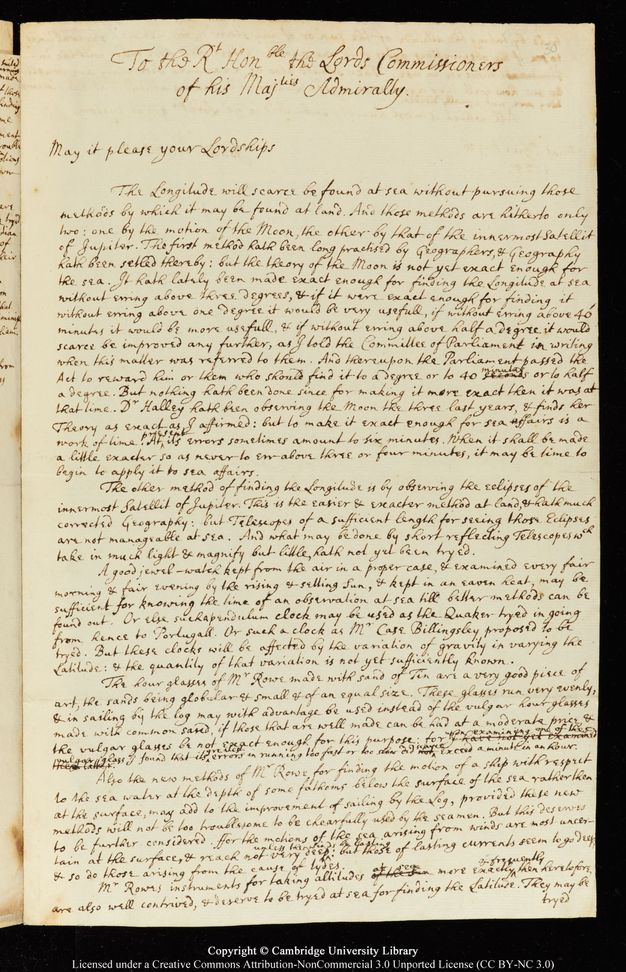 30
To the Rt Honble the Lords Commissioners
of his Majties Admiralty.
May it please your Lordships
The Longitude will scarce be found at sea without pursuing those
methods by which it may be found at land. And those methods are hitherto only
two: one by the motion of the Moon, the other by that of the innermost Satellit
of Jupiter. The first method hath been long practised by Geographers, & Geography
hath been setled thereby: but the theory of the Moon is not yet exact enough for
the sea. It hath lately been made exact enough for finding the Longitude at sea
without erring above three degrees, & if it were exact enough for finding it
without erring above one degree it would be very usefull, if without erring above 40
minutes it would be more usefull, & if without erring above half a degree it would
scarce be improved any further, as I told the Committee of Parliament in writing
when this matter was referred to them. And thereupon the Parliament passed the
Act to reward him or them who should find it to a degree or to 40 minutes or to half
a degree. But nothing hath been done since for making it more exact then it was at
that time. Dr Halley hath been observing the Moon the three last years, & finds her
Theory as exact as I affirmed: but to make it exact enough for sea affairs is a
work of time. At present its errors sometimes amount to six minutes. When it shall be made
a little exacter so as never to err above three or four minutes, it may be time to
begin to apply it to sea affairs.
The other method of finding the Longitude is by observing the eclipses of the
innermost Satellit of Jupiter. This is the easier & exacter method at land, & hath much
corrected Geography: but Telescopes of a sufficient length for seeing those Eclipses
are not manageable at sea. And what may be done by short reflecting Telescopes wch
take in much light & magnify but little, hath not yet been tryed.
A good jewel-watch kept from the air in a proper case, & examined every fair
morning & fair evening by the rising & setting Sun, & kept in an eaven heat, may be
sufficient for knowing the time of an observation at sea till better methods can be
found out. Or else such pendulum clock may be used as the Quaker tryed in going
from hence to Portugall. Or such a clock as Mr Case Billingsley proposed to be
tryed. But these clocks will be affected by the variation of gravity in varying the
Latitude: & the quantity of that variation is not yet sufficiently known.
The hour glasses of Mr Rowe made with sand of Tin are a very good piece of
art, the sands being globular & small & of an equal size. These glasses run very evenly,
& in sailing by the log may with advantage be used instead of the vulgar hour glasses
made with common sand, if those that are well made can be had at a moderate price &
the vulgar glasses be not exact enough for this purpose: for upon examining one of these
vulgar glasses I found that its errors in running too fast or too slow did scarce exceed a minute in an hour.
Also the new methods of Mr Rowe for finding the motion of a ship with respect
to the sea water at the depth of some fathoms below the surface of the sea rather than
at the surface, may add to the improvement of sailing by the Log, provided these new
methods will not be too troublesome to be chearfully used by the seamen. But this deserves
to be further considered. ffor the motions of the sea arising from winds are most uncer-
tain at the surface, & reach not very deep unless the wind be lasting: but those of lasting currents seem to go deep,
& so do those arising from the cause of tydes.
Mr Rowes instruments for taking altitudes at sea more exactly & frequently then heretofore,
are also well contrived, & deserve to be tryed at sea for finding the Latitude. They may be
tryed
Copyright © Cambridge University Library
Licensed under a Creative Commons Attribution-NonCommercial 3.0 Unported License (CC BY-NC 3.0)